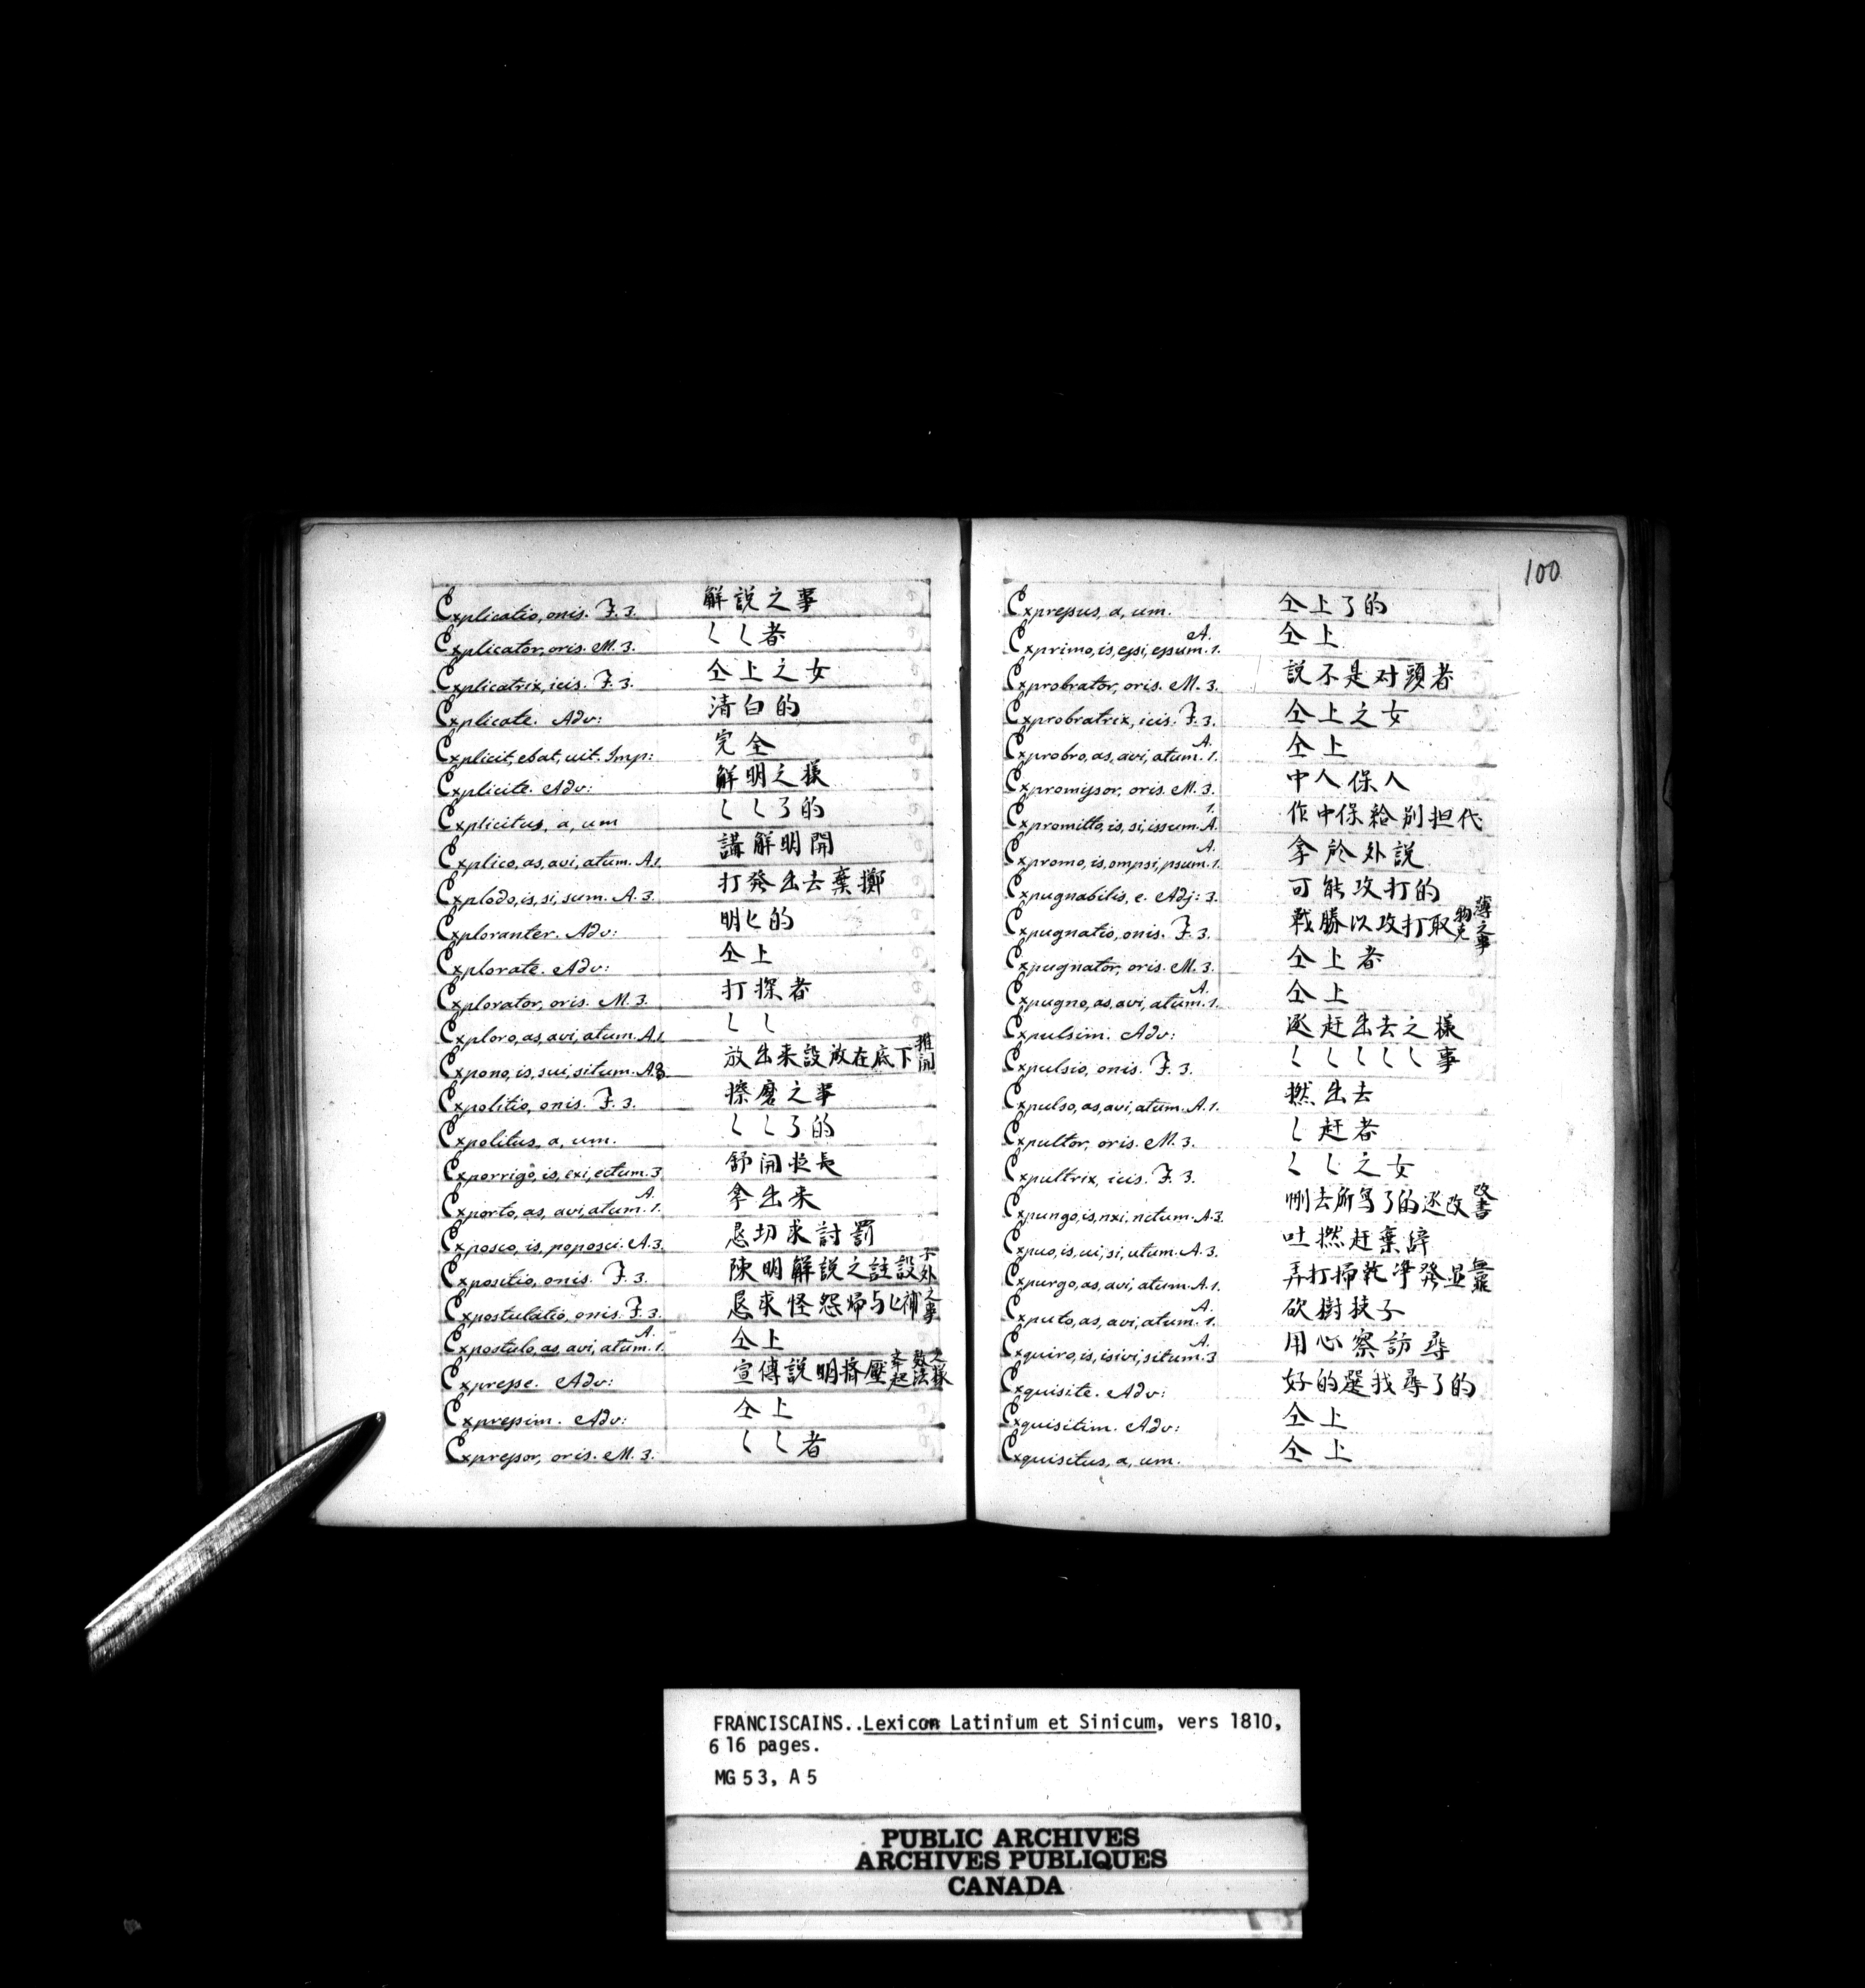 Explicatio, onis. F. 3. 解説之事
Explicator, oris. M. 3. 〱〱者
Explicatrix, icis. F. 3. 仝上之女
Explicate. Adv: 清白的
Explicit, ebat, uit. Imp: 完全
Explicite. Adv: 解明之樣
Explicitus, a, um 〱〱了的
Explico, as, avi, atum. A.1. 講解明開
Explodo, is, si, sum. A. 3. 打發出去棄擲
Exploranter. Adv: 明〱的
Explorate. Adv: 仝上
Explorator, oris. M. 3. 打探者
Exploro, as, avi, atum. A.1. 〱〱
Expono, is, sui, situm. A.3. 放出来設放在底下推開
Expolitio, onis. F. 3. 擦磨之事
Expolitus, a, um. 〱〱了的
Exporrigo, is, exi, ectum. 3. 舒開長
Exporto, as, avi, atum. A. 1. 拿出来
Exposco, is, poposci. A. 3. 恳切求討罰
Expositio, onis. F. 3. 陳明解説之註設于外
Expostulatio, onis. F. 3. 恳求怪怨帰与〱補之事
Expostulo, as, avi, atum. A. 1. 仝上
Expresse. Adv: 宣傳説明擠壓
Expressim. Adv: 仝上
Expressor, oris. M. 3. 〱〱者
100
Expressus, a, um. 仝上了的
Exprimo, is, essi, essum. A. 1. 仝上
Exprobrator, oris. M. 3. 説不是对頭者
Exprobratrix, icis. F. 3. 仝上之女
Exprobro, as, avi, atum. A. 1. 仝上
Expromissor, oris. M. 3. 中人保人
Expromitto, is, si, issum. A. 1. 作中保給別担代
Expromo, is, ompsi, psum. A. 1. 拿於外説
Expugnabilis, e. Adj: 3. 可能攻打的
Expugnatio, onis. F. 3. 戰勝以攻打取物
Expugnator, oris. M. 3. 仝上者
Expugno, as, avi, atum. A. 1. 仝上
Expulsim. Adv: 逐赶出去之樣
Expulsio, onis. F. 3. 〱〱〱〱〱事
Expulso, as, avi, atum. A. 1. 撚出去
Expultor, oris. M. 3. 〱赶者
Expultrix, icis. F. 3. 〱〱之女
Expungo, is, nxi, nctum. A. 3. 刪去所写了的逐改改書
Expuo, is, ui, si, utum. A. 3. 吐撚赶棄辞
Expurgo, as, avi, atum. A. 1. 弄打掃乾凈發显無罪
Exputo, as, avi, atum. A. 1. 砍樹扶子
Exquiro, is, isivi, situm. A. 3 用心察訪尋
Exquisite. Adv: 好的選找尋了的
Exquisitim. Adv: 仝上
Exquisitus, a, um. 仝上
FRANCISCAINS..Lexicon Latinium et Sinicum, vers 1810,
616 pages.
MG 53, A 5
PUBLIC ARCHIVES
ARCHIVES PUBLIQUES
CANADA